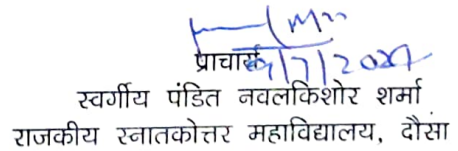 प्राचार्य
स्वर्गीय पंडित नवलकिशोर शर्मा
राजकीय स्नातकोत्तर महाविद्यालय, दौसा